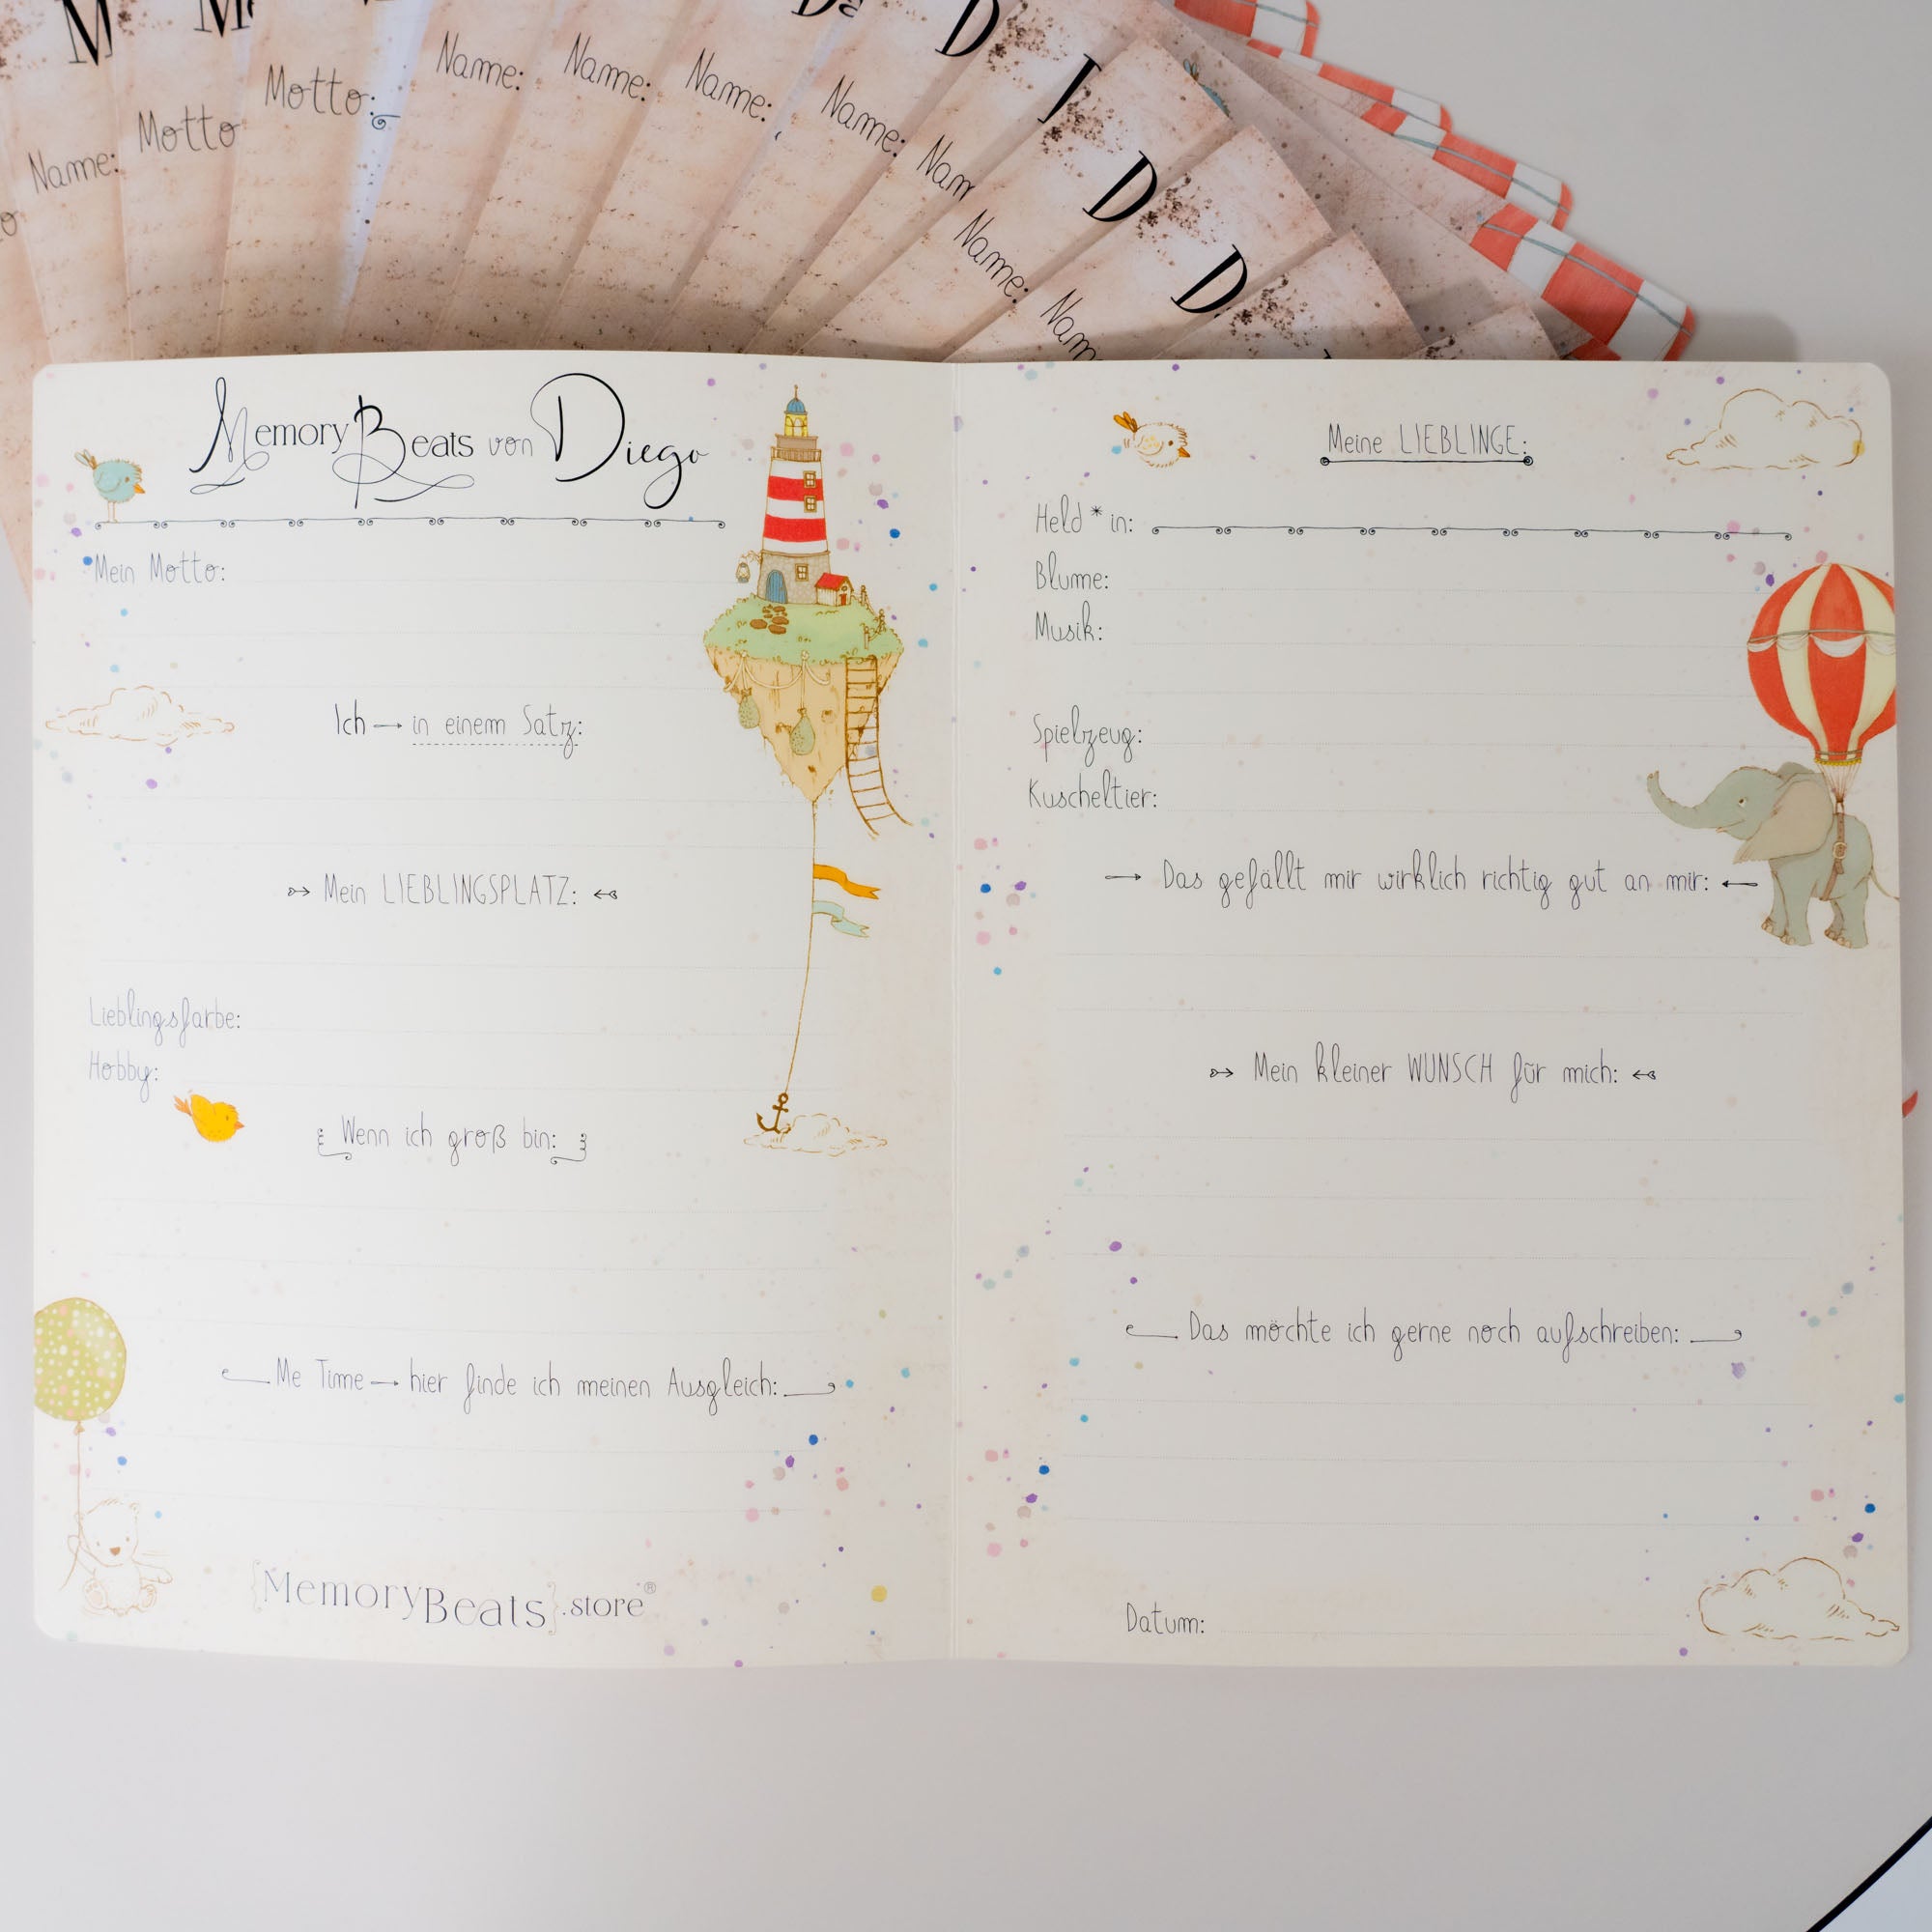 Name:
Motto
Motto:
Name:
Name:
Name:
Name:
Nam
Name:
Nam
D
D
D
MemoryBeats von Diego
Mein Motto:
Ich → in einem Satz:
Mein LIEBLINGSPLATZ:
Lieblingsfarbe:
Hobby:
Wenn ich groß bin:
Me Time → hier finde ich meinen Ausgleich:
{MemoryBeats}.store®
Meine LIEBLINGE:
Held*in:
Blume:
Musik:
Spielzeug:
Kuscheltier:
Das gefällt mir wirklich richtig gut an mir:
Mein kleiner WUNSCH für mich:
Das möchte ich gerne noch aufschreiben:
Datum: